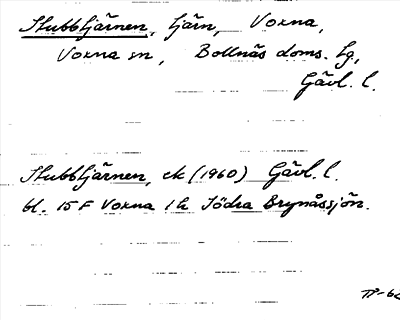 Stubbtjärnen, tjärn, Voxna,
Voxna sn, Bollnäs doms. tg,
Gävl. l.
Stubbtjärnen, ek (1960) Gävl. l.
bl. 15 F Voxna 1 h Södra Brynåssjön.